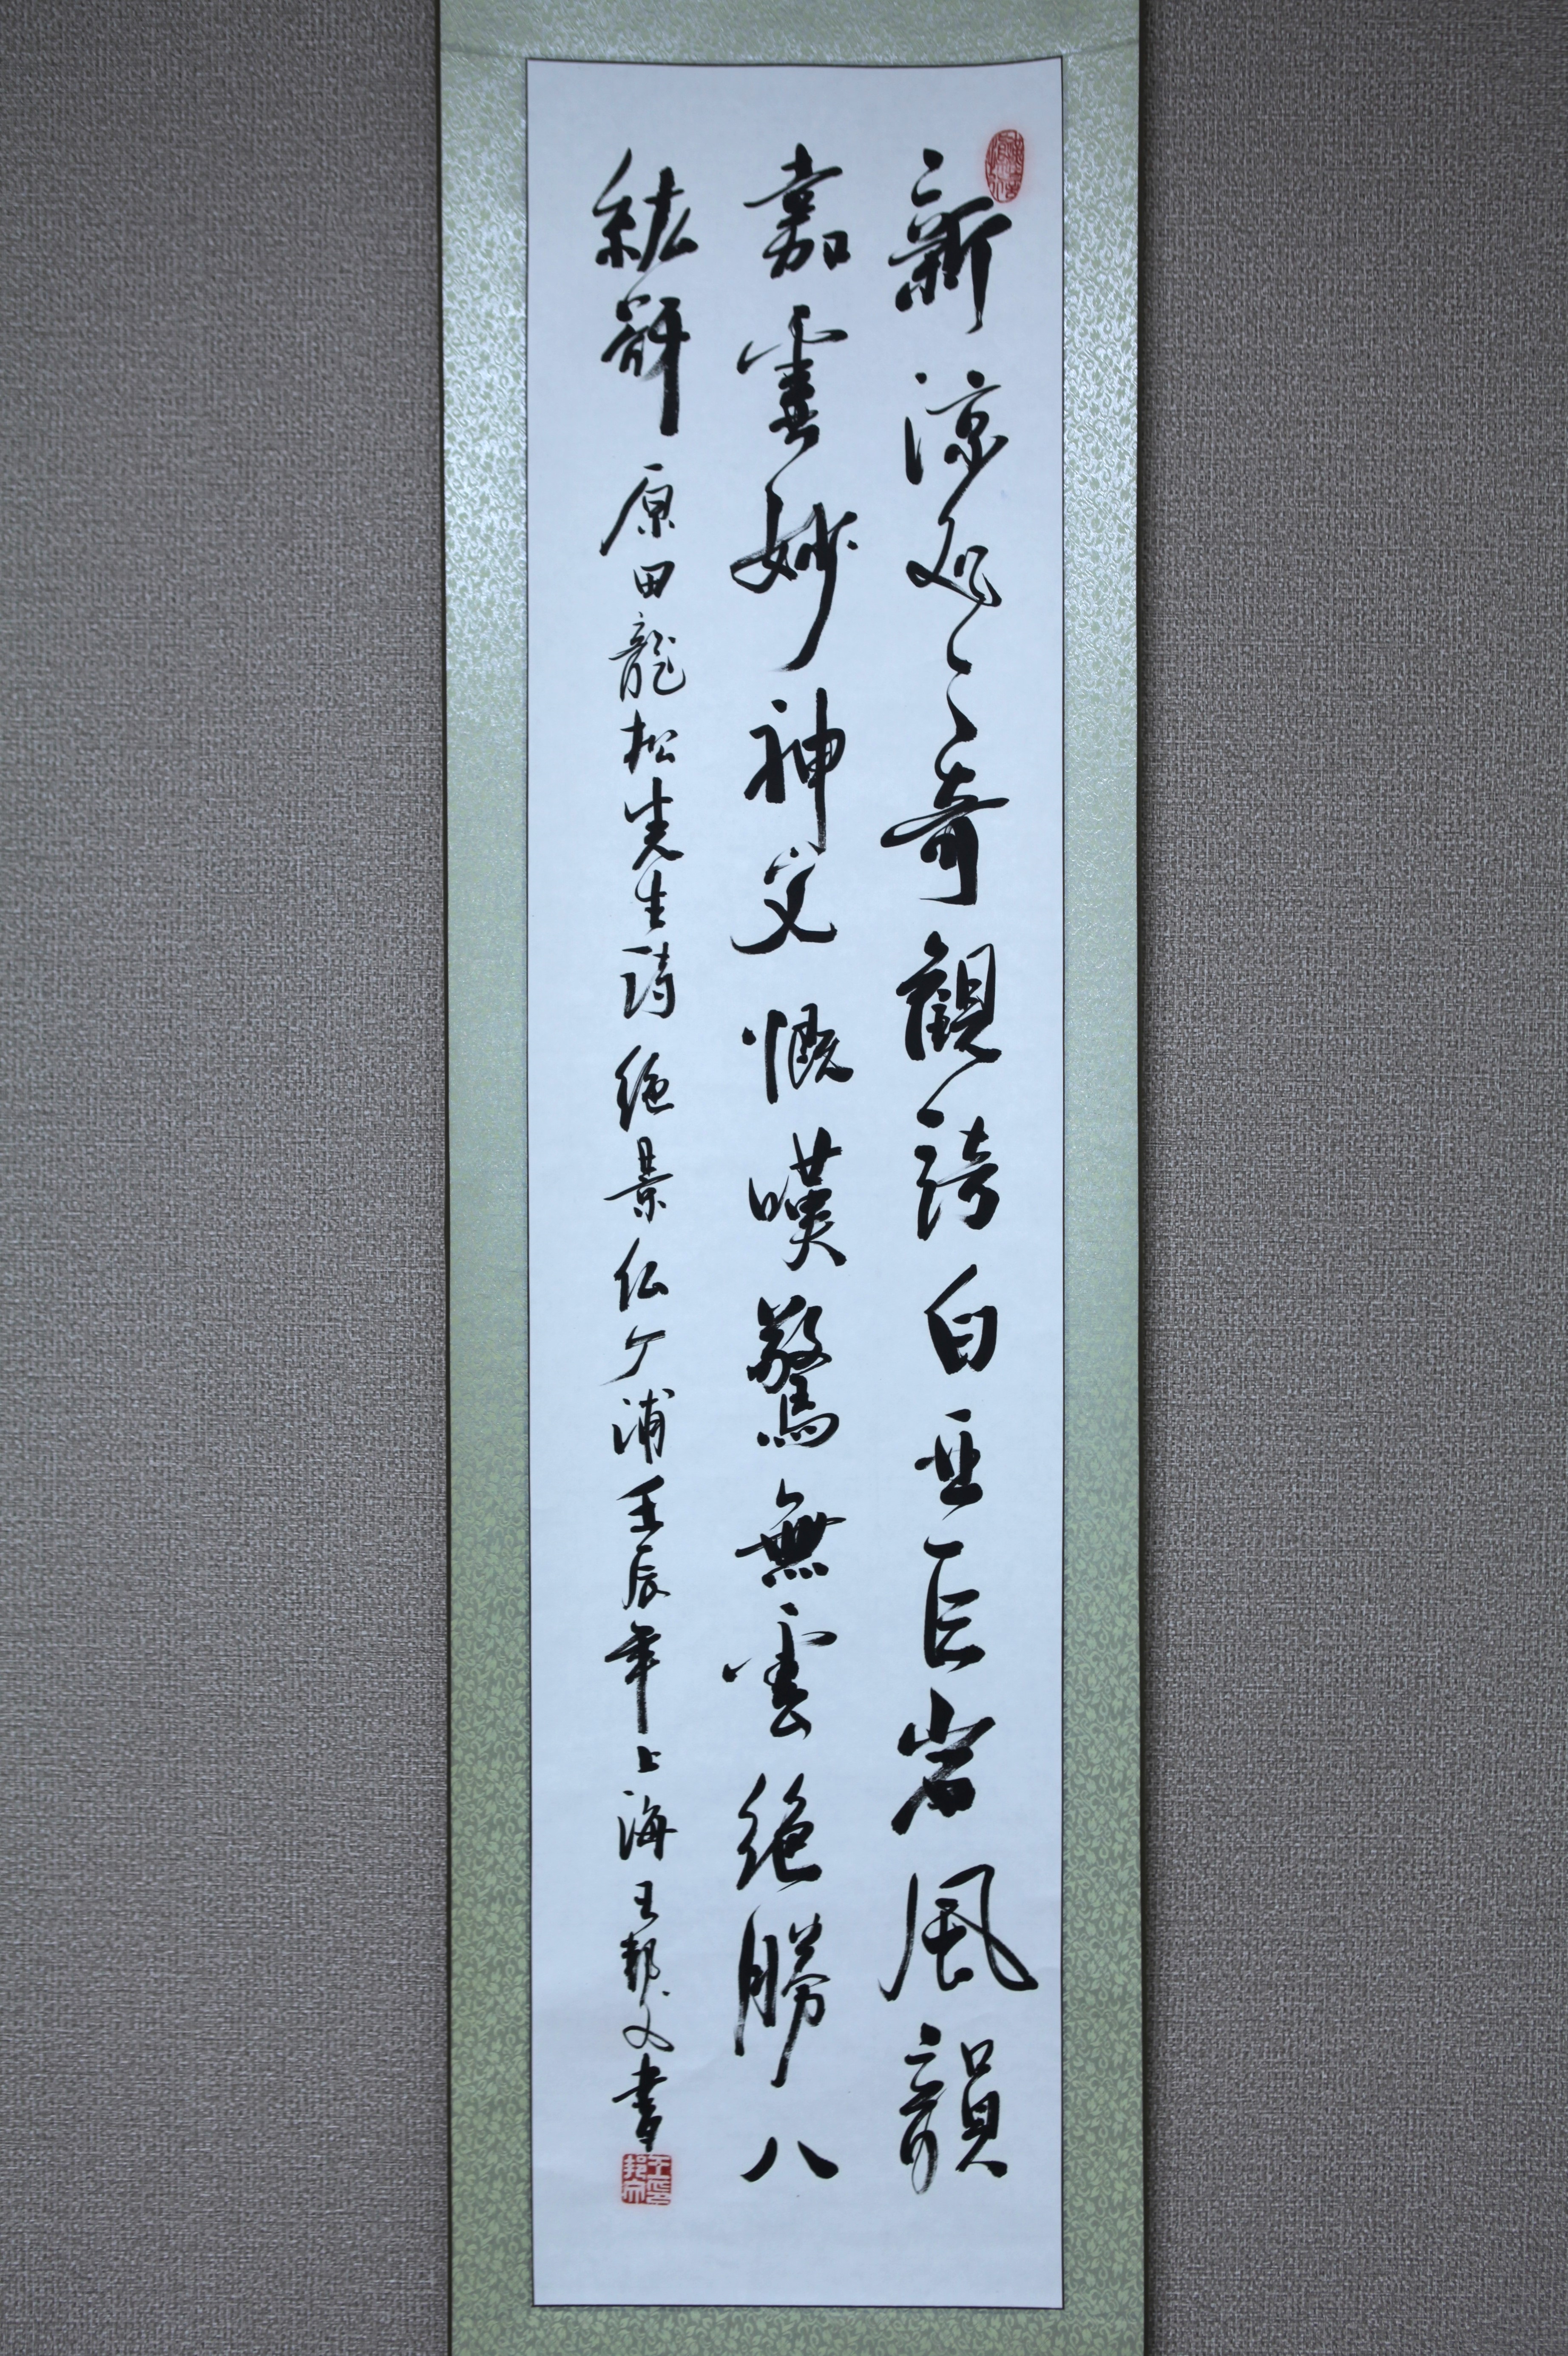 新涼処々奇觀誇白亜巨岩風韻
嘉霊妙神文慨嘆驚無雲絶勝八
紘谺 原田龍松先生詩 絶景仏ケ浦 壬辰年上海王邦文書